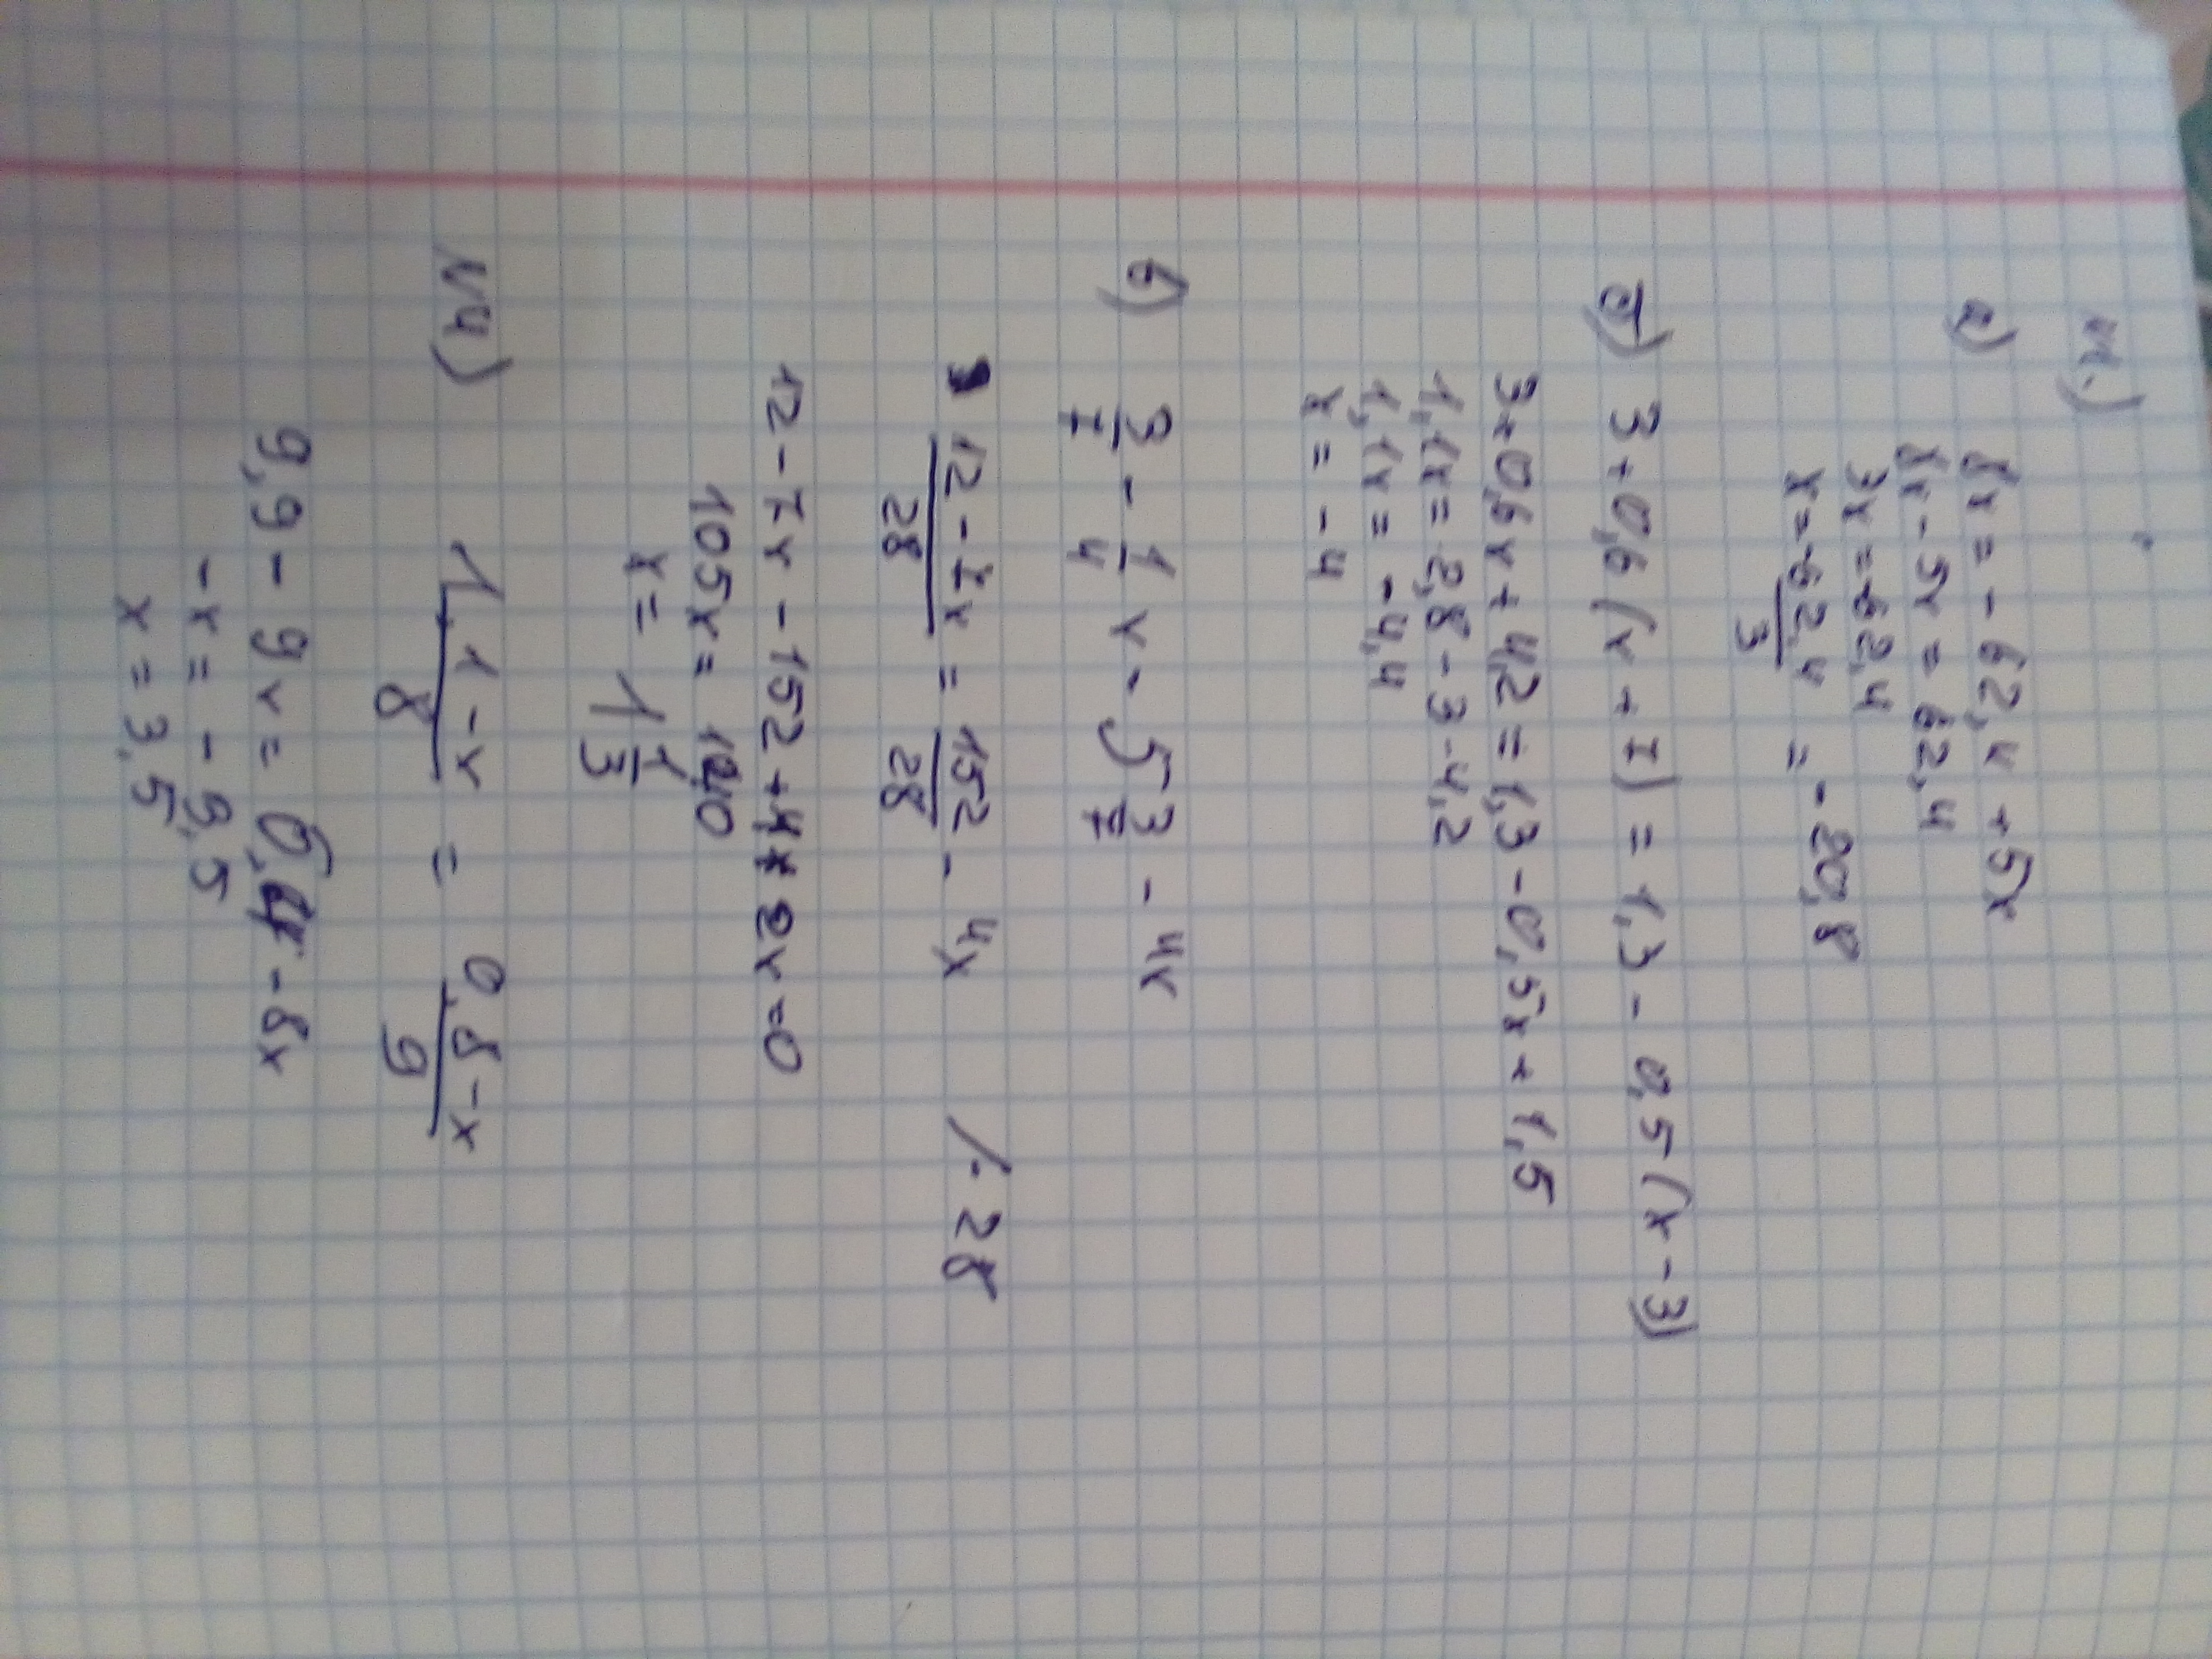 №1.)
а) 8x = - 62,4 + 5x
8x - 5x = 62,4
3x = -62,4
x = -62,4/3 = - 20,8
б) 3 + 0,6 (x + 7) = 1,3 - 0,5 (x - 3)
3 + 0,6x + 4,2 = 1,3 - 0,5x + 1,5
1,1x = 2,8 - 3 - 4,2
1,1x = - 4,4
x = - 4
в) 3/7 - 1/4 x - 5 3/7 - 4x
12 - 7x/28 = 152/28 - 4x /· 28
12 - 7x - 152 + 112x = 0
105x = 140
x = 1 1/3
№4) 1,1 - x/8 = 0,8 - x/9
9,9 - 9x = 6,4 - 8x
- x = - 3,5
x = 3,5